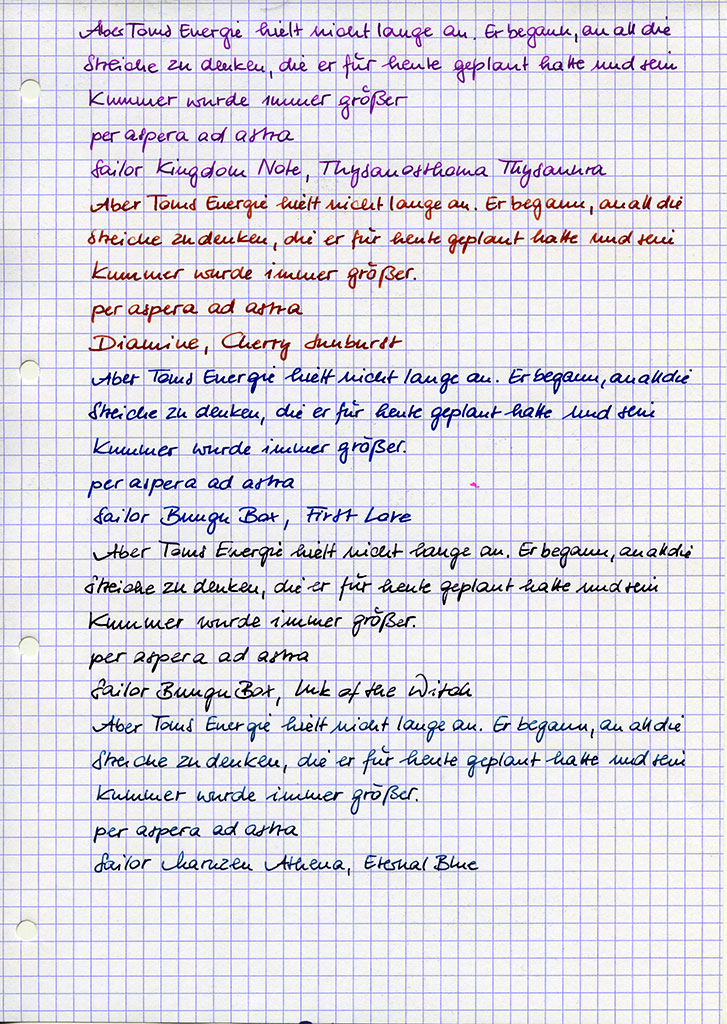 Aber Toms Energie hielt nicht lange an. Er begann, an all die
Streiche zu denken, die er für heute geplant hatte und sein
Kummer wurde immer größer
per aspera ad astra
Sailor Kingdom Note, Thysanosthoma Thysanura
Aber Toms Energie hielt nicht lange an. Er begann, an all die
Streiche zu denken, die er für heute geplant hatte und sein
Kummer wurde immer größer.
per aspera ad astra
Diamine, Cherry Sunburst
Aber Toms Energie hielt nicht lange an. Er begann, an all die
Streiche zu denken, die er für heute geplant hatte und sein
Kummer wurde immer größer.
per aspera ad astra
Sailor Bungu Box, First Love
Aber Toms Energie hielt nicht lange an. Er begann, an all die
Streiche zu denken, die er für heute geplant hatte und sein
Kummer wurde immer größer.
per aspera ad astra
Sailor Bungu Box, Ink of the Witch
Aber Toms Energie hielt nicht lange an. Er begann, an all die
Streiche zu denken, die er für heute geplant hatte und sein
Kummer wurde immer größer.
per aspera ad astra
Sailor Maruzen Athena, Eternal Blue